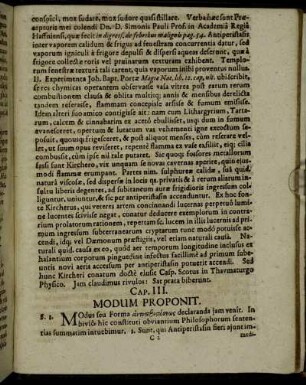 conspici, mox sudare, mox sudore quasi stillare. Verba hæc sunt Præ-
ceptoris mei colendi Dn. D. Simonis Pauli Prof. in Academiâ Regiâ
Haffniensi, quæ fecit in digress. de febribus malignis pag. 54. Antiperistasin
inter vaporem calidum & frigus ad fenestram concurrentia datur, sed
vaporum igneuli à frigore depulsi & dispersi aquam deserunt, quæ à
frigore collecta roris vel pruinarum texturam exhibent. Templo-
rum fenestræ texturâ tali carent, quia vaporum inibi proventus nullus.
II. Experimenta Joh. Bapt. Portæ Magia Nat. lib. 12. cap. ult. ubi scribit,
se ex chymicis operantem observasse vasa vitrea post earum rerum
combustionem clausa & oblita multis; annis & mensibus derelicta
tandem reserasse, flammam concepisse, afflasse & fumum emisisse.
Idem alteri suo amico contigisse ait: nam cum Lithargyrium, Tarta-
rum, calcem & cinnabrim ex aceto ebullisset, usq; dum in fumum
evanescerent, opertum & lutatum vas vehementi igne exceditum se-
posuit, quousq; frigesceret, & post aliquot menses, cùm reserare vel-
let, ut suum opus reviseret, repente flamma ex vase exsiliit, ei; cilia
combussit, cùm ipse nil tale putaret. Sic quoq; fossores metallorum
fassi sunt Kirchero, vix unquam se novas cavernas aperire, quin ejus-
modi flammæ erumpant. Partes nim. sulphureæ calidæ, sui quâ
naturâ viscosæ, sed dispersæ in locis q; privatis & à rerum aliarum in-
sultu liberis degentes, ad subitaneum auræ frigidioris ingressum col-
liguntur, uniuntur, & sic per antiperistasin accenduntur. Ex hoc ca-
te Kircherus, qui revera artem concinnandi lucernas perpetuò lumi-
ne lucentes scivisse negat, conatur deducere exemplorum in contra-
rium prolatorum rationem, repertam sc. lucem in illis lucernis ad pri-
mum ingressum subterraneorum cryptarum tunc modò potuisse ac-
cendi, idq; vel Dæmonum præstigiis, vel etiam naturali causâ. Na-
turali quidem causâ ex eo, quòd aër temporum longitudine inclusus ex
halantium corporum pinguedine infectus facillimè ad primum sub-
euntis novi aëris accessum per antiperistasin potuerit accendi. Sed
hunc Kircheri conatum doctè elusit Casp. Scotus in Thaumaturgo
Physico. Jam claudimus rivulos: Sat prata biberunt.
Cap. III.
MODUM PROPONIT.
§. 1. Modus seu Forma declaranda jam venit. In
bivio hîc constituti obviantium Philosophorum senten-
tias summatim intuebimur. 1. Sunt, qui Antiperistasin fieri ajunt im-
C 2